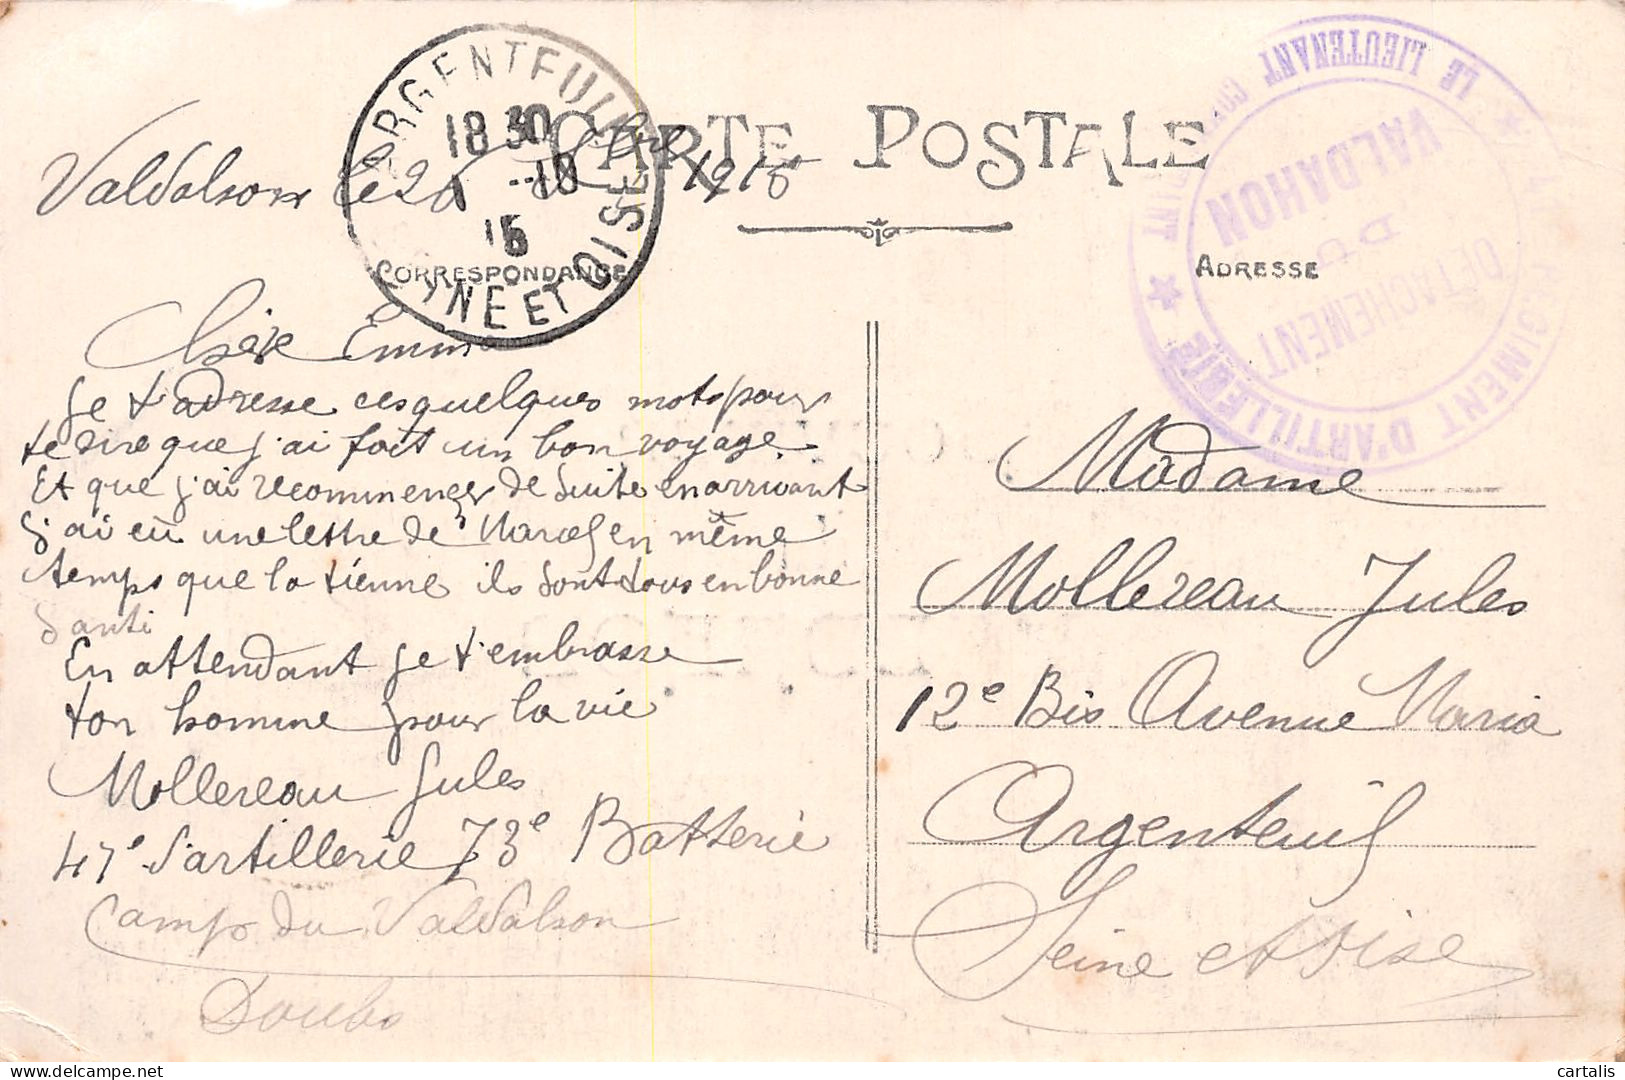 CARTE POSTALE
ARGENTEUIL
18 30
1 -10
15
NE ET OISE
LE LIEUTENANT
47 RÉGIMENT D'ARTILLERIE
DÉTACHEMENT
DU
VALDAHON
CORRESPONDANCE
ADRESSE
Valdalhon le 1915
Chère Emma
Je t'adresse ces quelques mots pour
te dire que j'ai fait un bon voyage
Et que j'ai recommencer de suite en arrivant
j'ai eu une lettre de Marcel en même
temps que la tienne ils sont tous en bonne
Santé
En attendant je t'embrasse
ton homme pour la vie
Mollereau Jules
47e d'artillerie 73e Batterie
Camp du Valdalhon
Doubs
Madame
Mollereau Jules
12e Bis Avenue Maria
Argenteuil
Seine et Oise
delcampe.net
cartalis